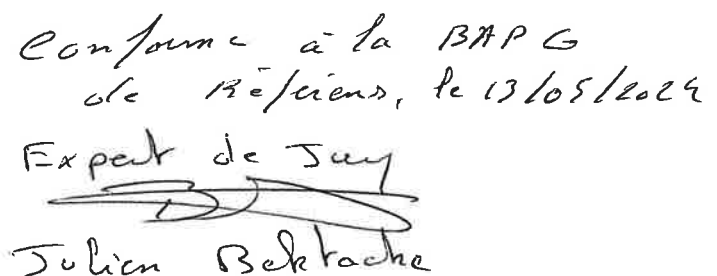 Conforme à la BAP G
de Référens, le 13/05/2024
Expert de Jury
Julien Baktache